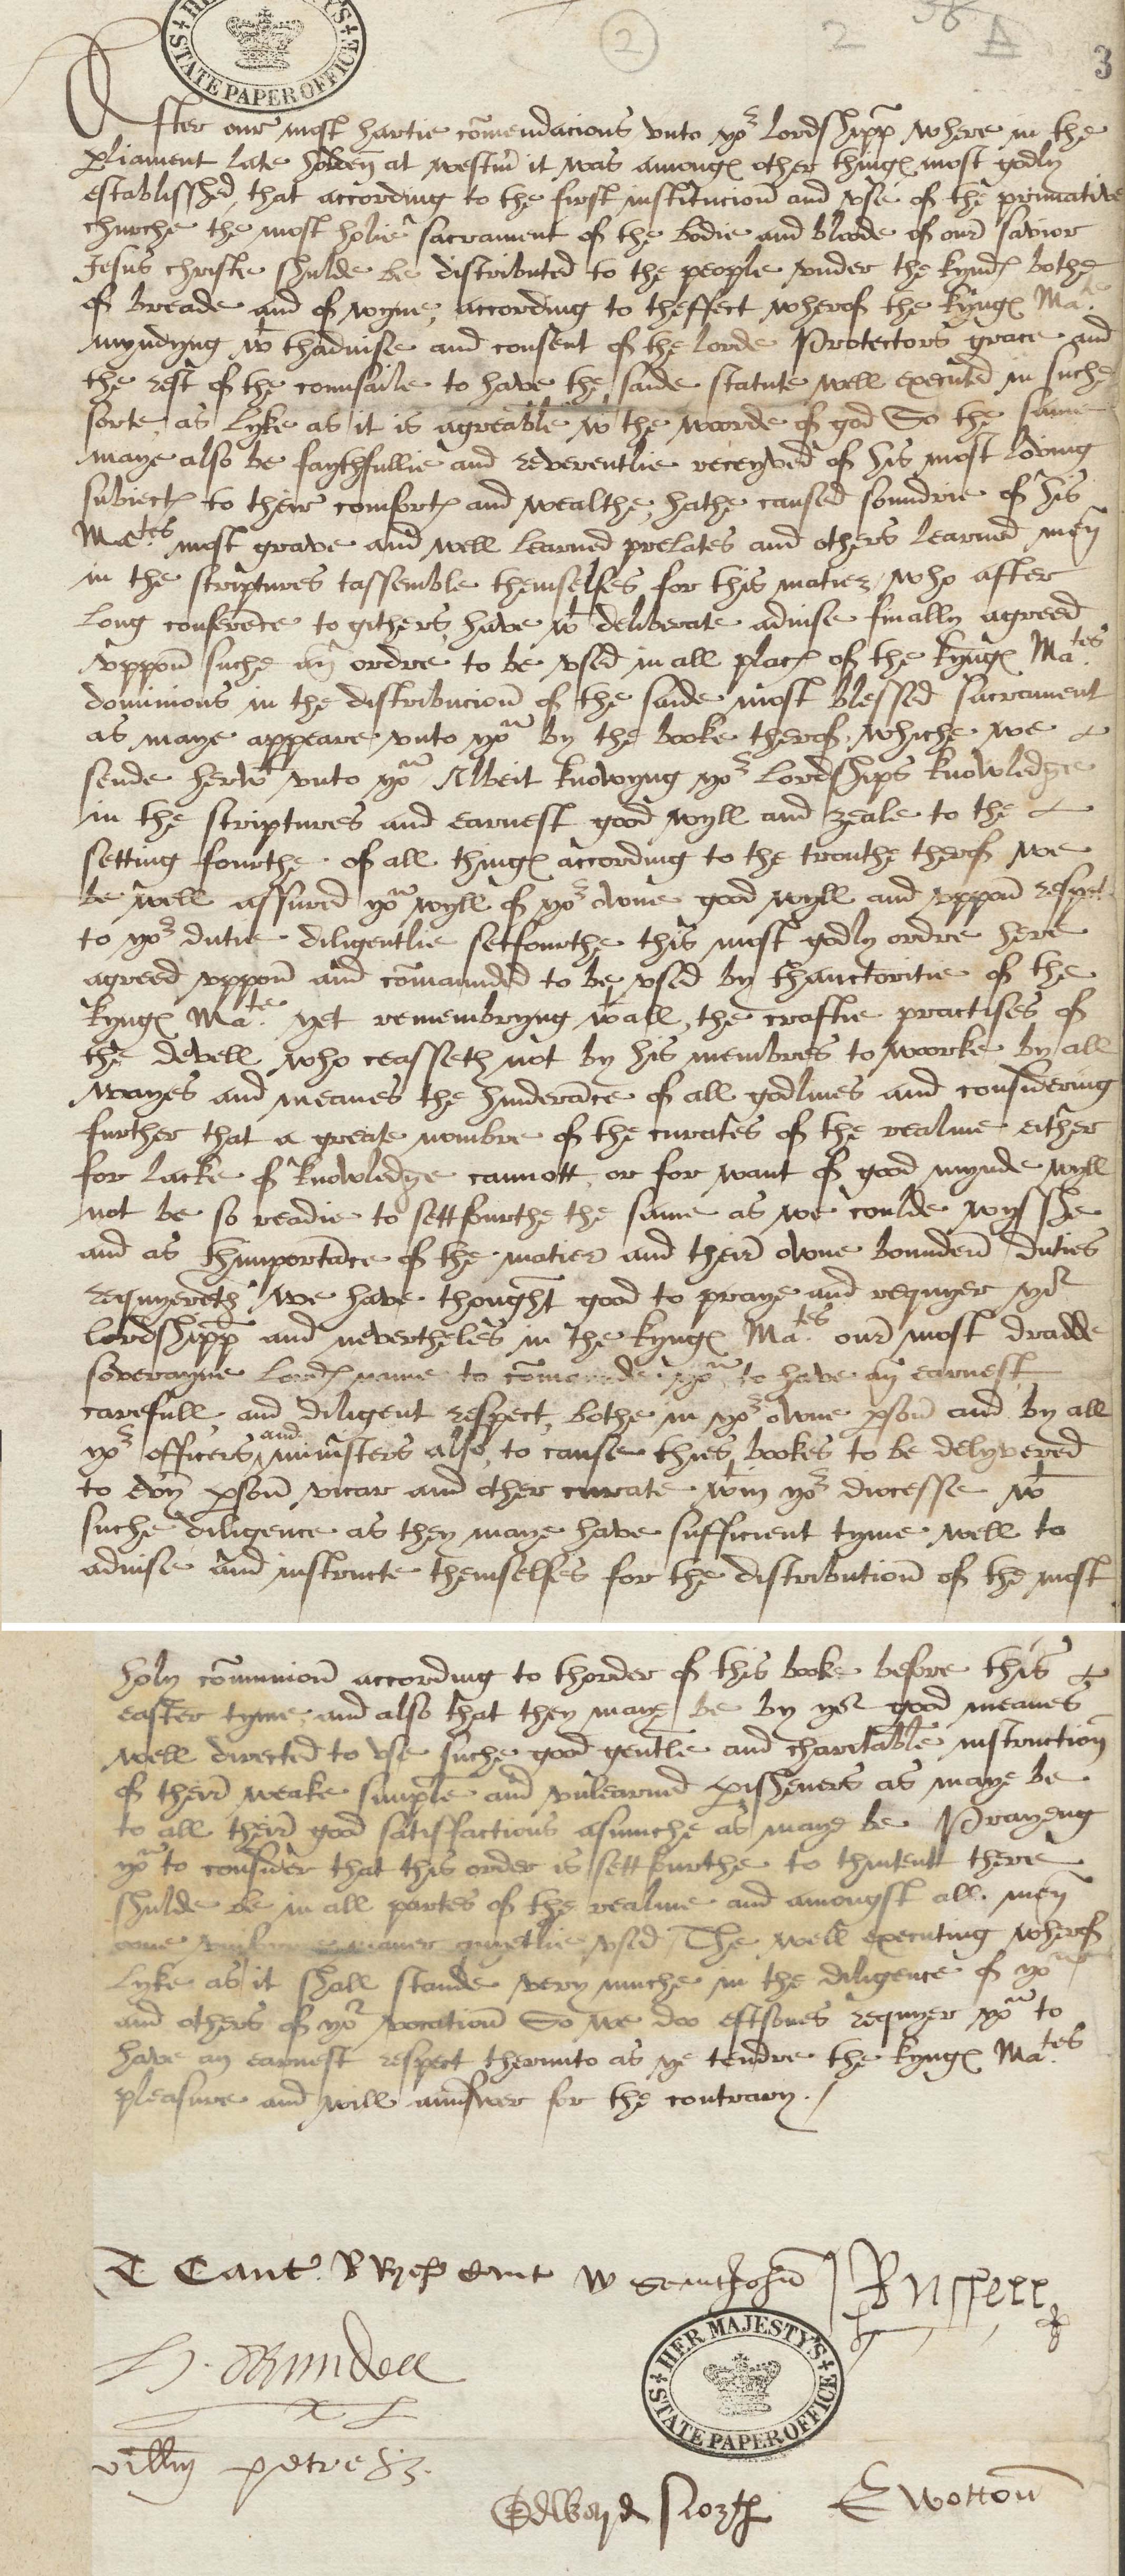 HER MAJESTY'S STATE PAPER OFFICE
2 2 A 3
After our most hartie cōmendacions vnto yor Lordshipp where in the
pliament late holden at westm it was amongs other things most godly
establisshed, that according to the first institucion and vse of the primative
churche the most holie sacrament of the bodie and bloode of our savior
Jesus christe shulde be distributed to the people vnder the kynds bothe
of breade and of wyne, according to theffect wherof the kyngs Mate
myndyng wt thaduise and consent of the lorde Protectors grace and
the rest of the counsaile to have the saide statute well executed in suche
sorte, as lyke as it is agreable wt the woorde of god So the same
maye also be faythfullie and reverentlie receyved of his most loving
subiects to their comforts and wealthe, hathe caused soundrie of his
Mates most grave and well learned prelates and others learned men
in the scriptures tassemble themselfes for this matier, who after
long conference to githers, have wt deliberate aduise finally agreed
vppon suche an ordre to be vsed in all places of the kyngs Mates
dominions in the distribucion of the saide most blessed sacrament
as maye appeare vnto you by the booke therof whiche we
sende herwt vnto you Albeit knowyng yor Lordships knowledge
in the scriptures and earnest good wyll and zeale to the
setting fourthe of all things according to the trouthe therof we
be well assured you wyll of yor owne good wyll and vppon respect
to yor dutie diligentlie setfourthe this most godly ordre here
agreed vppon and cōmaunded to be vsed by thauctoritie of the
kyngs Mate. yet remembryng wtall, the craftie practises of
the devell who ceasseth not by his membres to woorke by all
wayes and meanes the hinderance of all godlines and considering
further that a greate nombre of the curates of the realme either
for lacke of knowledge cannott, or for want of good mynde wyll
not be so readie to settfourthe the same as we coulde wysshe
and as thimportance of the matier and their owne bounden duties
requyereth We have thought good to praye and requyer yor
Lordshipp and nevertheles in the kyngs Mates our most dradde
soverayne Lords name to cōmaunde you to have an earnest
carefull and diligent respect, bothe in yor owne pson and by all
yor officers and ministers also, to cause thies bookes to be delyvered
to evy pson vicar and other curate wtin yor diocesse wt
suche diligence as they maye have sufficient tyme well to
aduise and instructe themselfes for the distribution of the most
holy cōmunion according to thorder of this booke before this
easter tyme, and also that they maye be by yor good meanes
well directed to vse suche good gentle and charitable instruction
of their weake simple and vnlearned pisheners as maye be
to all their good satisfactions asmuche as maye be Prayeng
you to consider that this order is settfourthe to thintent there
shulde be in all partes of the realme and amongst all men
one vniforme maner quyetlie vsed The well executing wherof
Lyke as it shall stande very muche in the diligence of you
and others of yor vocation So we doo eftsones requyer you to
have an earnest respect therunto as ye tendre the kyngs Mates
pleasure and will aunswer for the contrary.
T Cant. R Ryche canc W Seint John J Russell
H. Arundell
HER MAJESTY'S STATE PAPER OFFICE
Willm petre Sz.
Edward North E Wotton